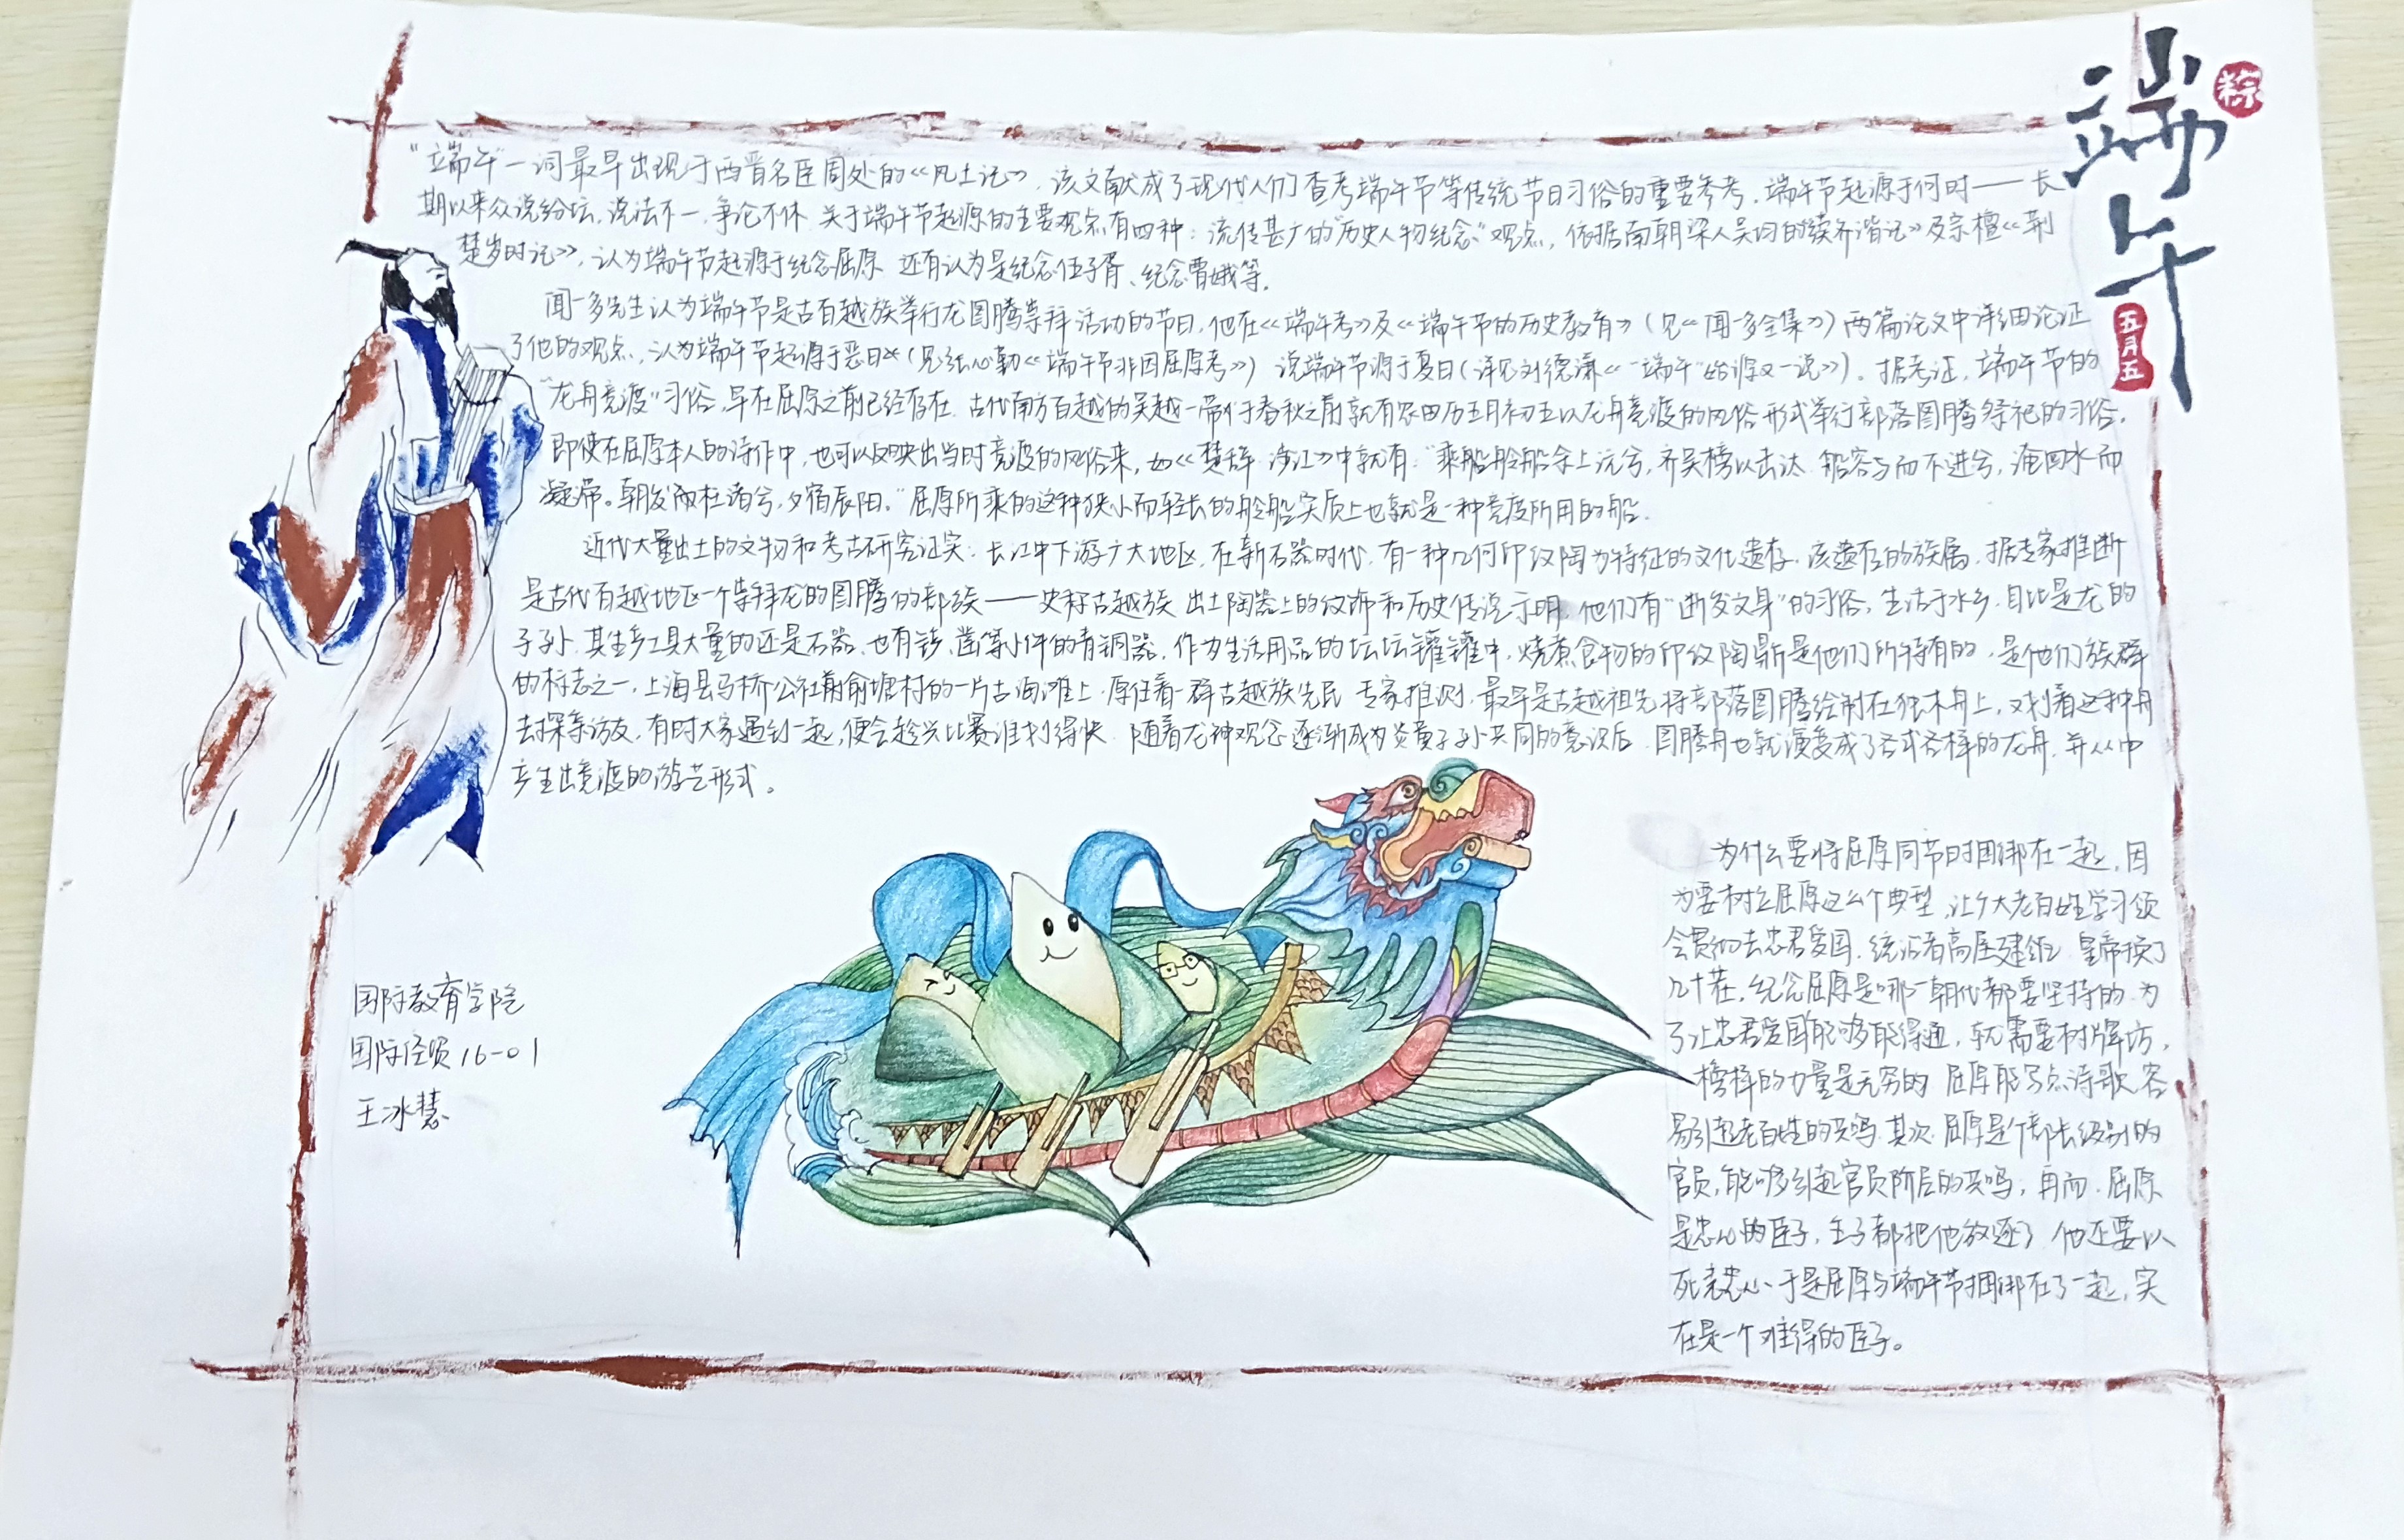 端午
粽
五月五
"端午"一词最早出现于西晋名臣周处的《风土记》,该文献成了现代人们查考端午节等传统节日习俗的重要参考.端午节起源于何时——长
期以来众说纷坛,说法不一,争论不休.关于端午节起源的主要观点有四种:流传甚广的"历史人物纪念"观点,依据南朝梁人吴均的《续齐谐记》及宗檀《荆
楚岁时记》,认为端午节起源于纪念屈原.还有认为是纪念伍子胥、纪念曹娥等.
闻一多先生认为端午节是古百越族举行龙图腾崇拜活动的节日,他在《端午考》及《端午节的历史教育》(见《闻一多全集》)两篇论文中详细论证
了他的观点,认为端午节起源于恶日(见张心勤《端午节非因屈原考》) 说端午节源于夏日(详见刘德谦《"端午"始源又一说》)。据考证,端午节的
"龙舟竞渡"习俗,早在屈原之前已经存在.古代南方百越的吴越一带于春秋之前就有农田历五月初五以龙舟竞渡的风俗形式举行部落图腾祭祀的习俗.
即使在屈原本人的诗作中,也可以反映出当时竞渡的风俗来,如《楚辞 涉江》中就有:"乘船舲船余上沅兮,齐吴榜以击汰 船容与而不进兮,淹回水而
凝滞。朝发枉渚兮,夕宿辰阳."屈原所乘的这种狭小而轻长的舲船实质上也就是一种竞度所用的船.
近代大量出土的文物和考古研究证实:长江中下游广大地区,在新石器时代,有一种几何印纹陶为特征的文化遗存.该遗存的族属,据专家推断
是古代百越地区一个崇拜龙的图腾的部族——史称古越族 出土陶器上的纹饰和历史传说示明,他们有"断发文身"的习俗,生活于水乡,自比是龙的
子孙.其生产工具大量的还是石器,也有铲、凿等小件的青铜器.作为生活用品的坛坛罐罐中,烧煮食物的印纹陶鼎是他们所特有的,是他们族群
的标志之一,上海县马桥公社俞塘村的一片古海滩上.原住着一群古越族先民 专家推测,最早是古越祖先将部落图腾绘制在独木舟上,划着这种舟
去探亲访友,有时大家遇到一起,便会趁兴比赛谁划得快.随着龙神观念逐渐成为炎黄子孙共同的意识后.图腾舟也就演变成了各式各样的龙舟.并从中
产生出竞渡的游艺形式。
为什么要将屈原同节时捆绑在一起,因
为要树立屈原这么个典型,让广大老百姓学习领
会贯彻去忠君爱国.统治者高屋建瓴 皇帝换了
几十茬,纪念屈原是哪一朝代都要坚持的.为
了让忠君爱国能够取得通,就需要树牌坊,
榜样的力量是无穷的 屈原那写点诗歌,容
易引起老百姓的共鸣.其次.屈原是个部长级别的
官员,能够引起官员阶层的共鸣,再而.屈原
是忠心的臣子,主子都把他放逐了 他还要以
死表忠心、于是屈原与端午节捆绑在了一起,实
在是一个难得的臣子。
国际教育学院
国际经贸16-01
王冰慧